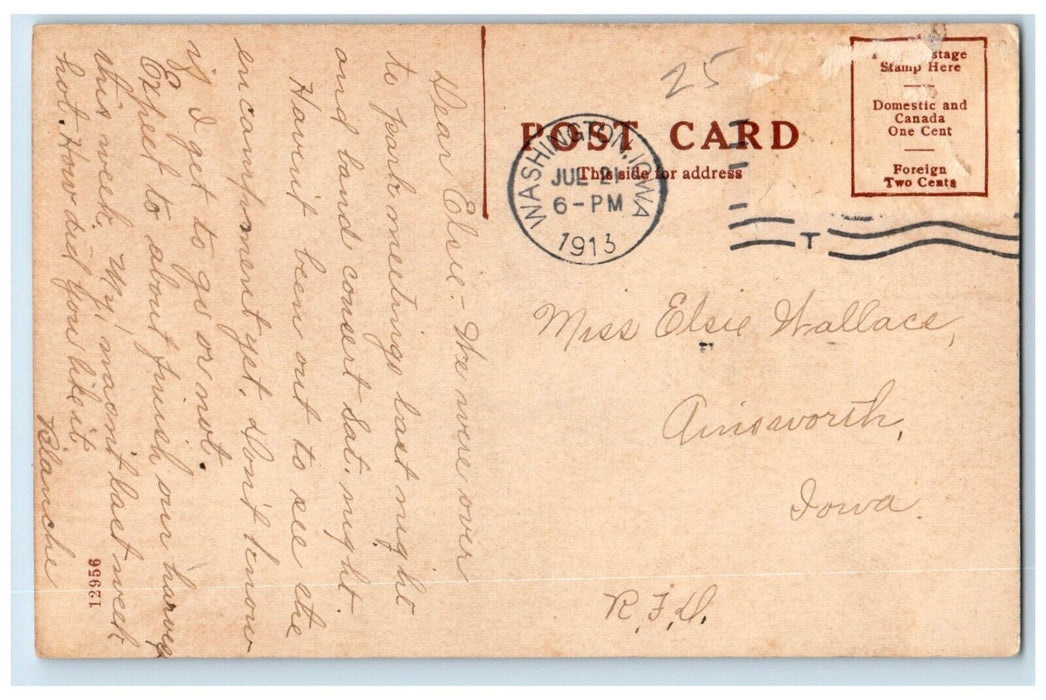 Dear Elsie:- We were over
to park meetings last night
and band consert Sat. night.
Havn't been out to see the
encampment yet. Don't know
if I get to go or not.
Expect to about finish our harves
this week. My, wasn't last week
hot. How did you like it
Blanche
12956
25
POST CARD
This side for address
WASHINGTON, IOWA
JUL 21
6-PM
1913
T
stage
Stamp Here
Domestic and
Canada
One Cent
Foreign
Two Cents
Miss Elsie Wallace,
Ainsworth,
Iowa.
R.F.D.